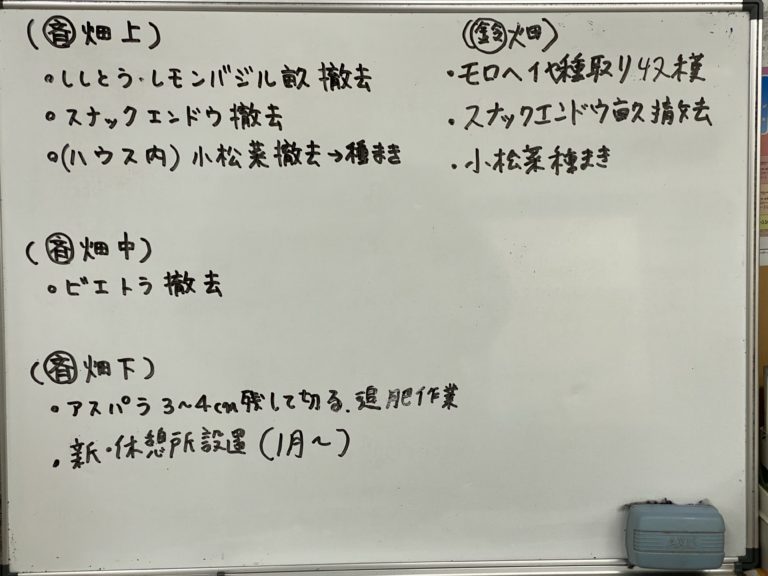 (㊮畑上)
・ししとう・レモンバジル畝 撤去
・スナックエンドウ撤去
・(ハウス内) 小松菜撤去→種まき
(斉畑中)
・ビエトラ撤去
(斉畑下)
・アスパラ3~4cm残して切る、追肥作業
・新・休憩所設置(1月~)
(鈴畑)
・モロヘイヤ種取り収穫
・スナックエンドウ畝撤去
・小松菜種まき